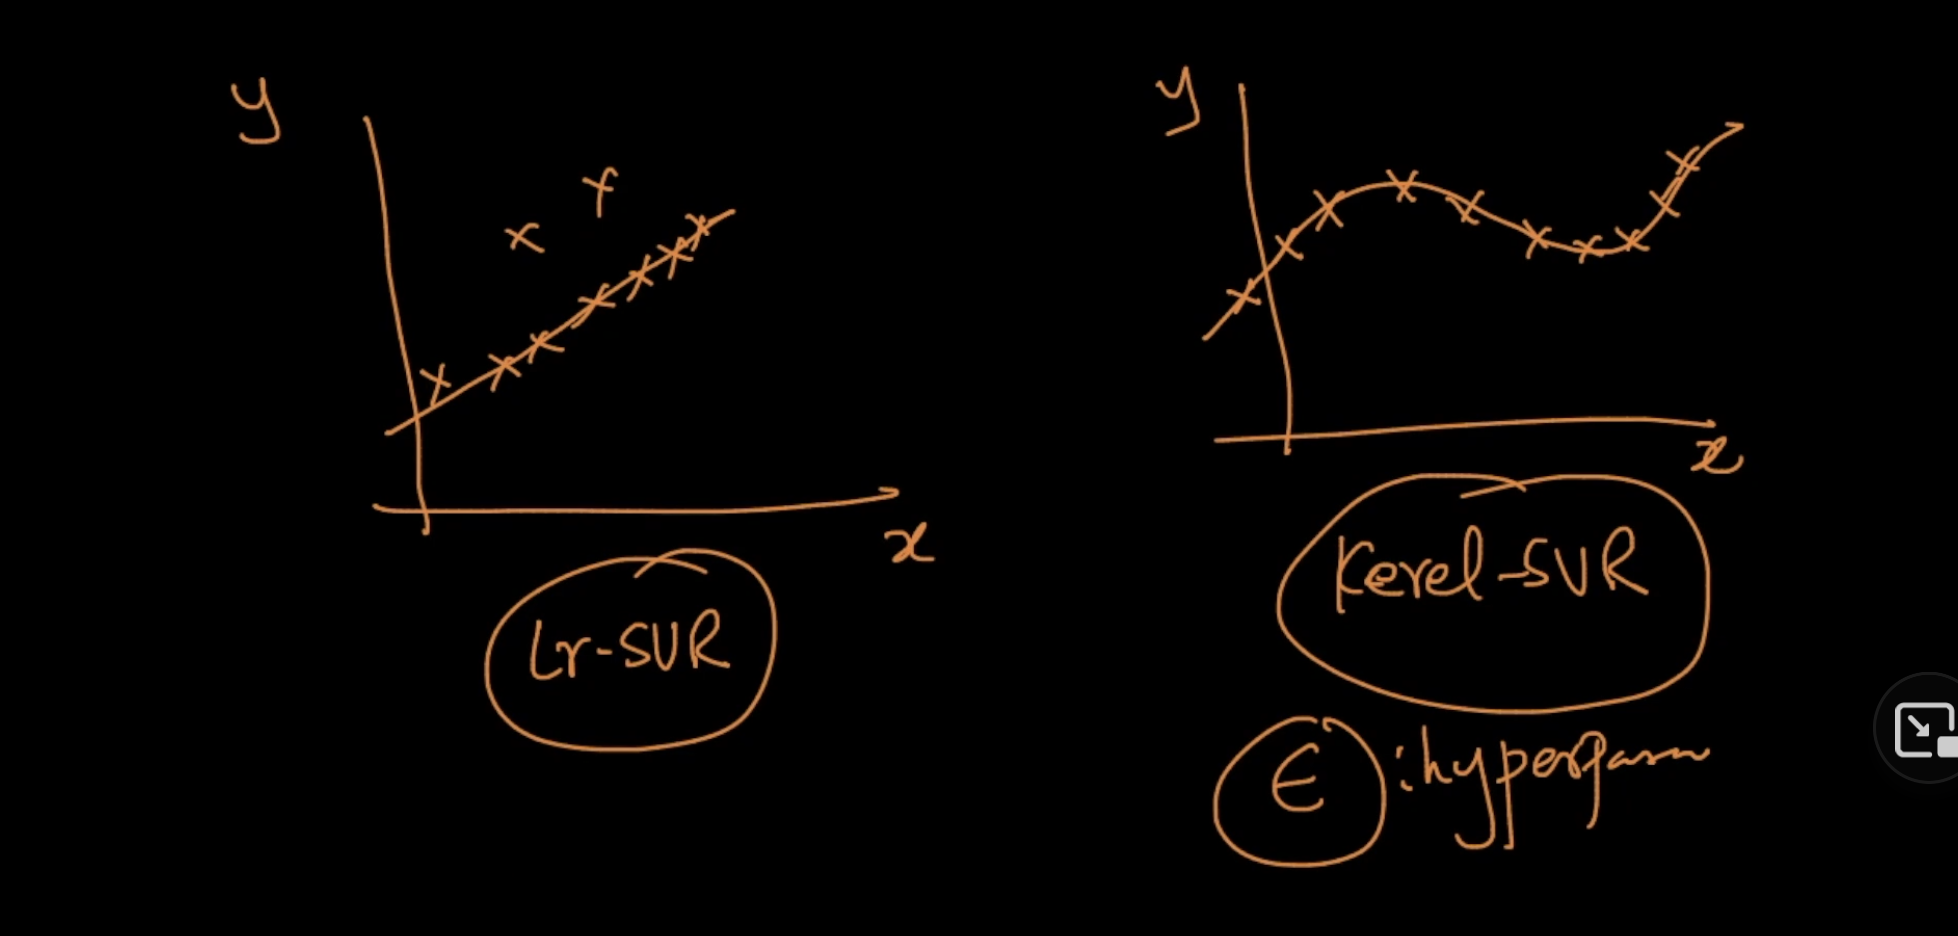 y
x
Lr-SVR
y
x
Kerel-SVR
ϵ : hyperparam